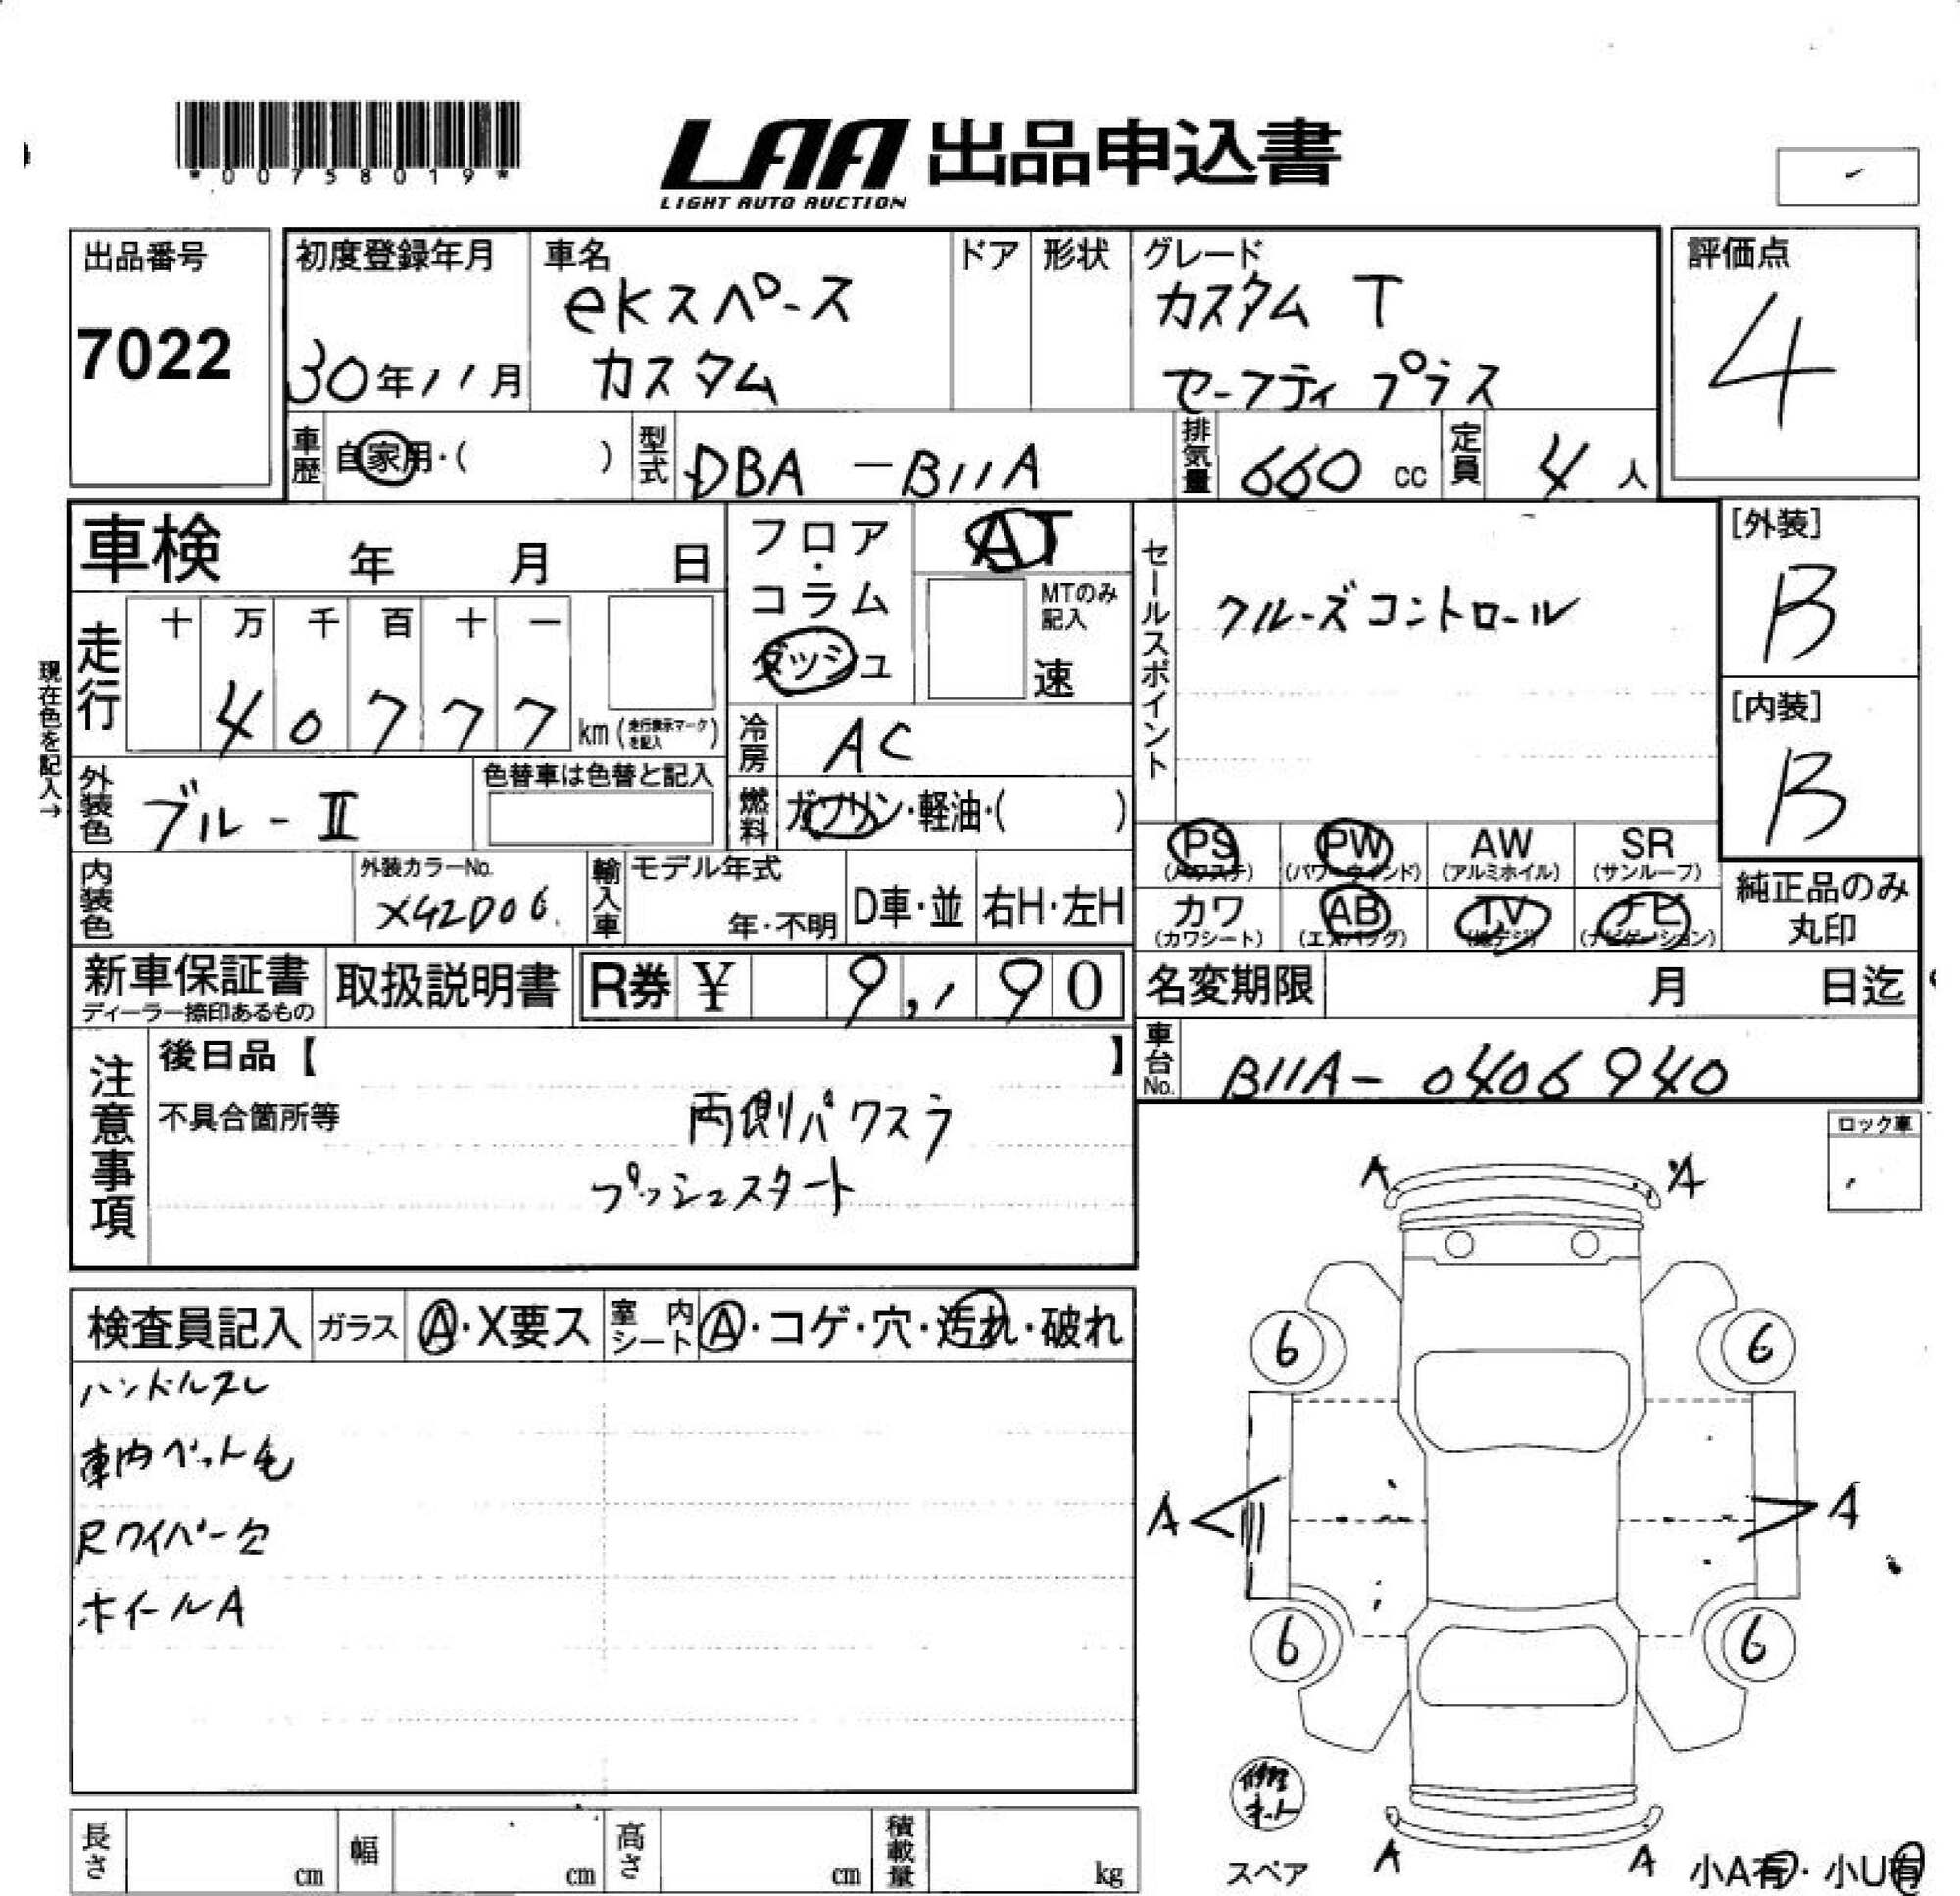 *00758019*
LAA 出品申込書
LIGHT AUTO AUCTION
出品番号
7022
初度登録年月
30年11月
車名
ekスペース
カスタム
ドア
形状
グレード
カスタム T
セーフティ プラス
評価点
4
車歴 自家用・( )
型式 DBA-B11A
排気量 660 cc
定員 4 人
車検 年 月 日
フロア・コラム
ダッシュ
AT
MTのみ記入
速
セールスポイント
クルーズコントロール
[外装]
B
[内装]
B
現在色を記入→
走行 十 万 千 百 十 一
4 0 7 7 7 km (走行表示マークを記入)
冷房 AC
外装色 ブルーⅡ
色替車は色替と記入
燃料 ガソリン・軽油・( )
PS (パワステ)
PW (パワーウィンド)
AW (アルミホイル)
SR (サンルーフ)
カワ (カワシート)
AB (エアバッグ)
TV (地デジ)
ナビ (ナビゲーション)
純正品のみ
丸印
内装色
外装カラーNo.
X42D06
輸入車 モデル年式
年・不明
D車・並
右H・左H
新車保証書
ディーラー捺印あるもの
取扱説明書
R券 ¥ 9,190
名変期限 月 日迄
車台No. B11A-0406940
注意事項
後日品【 】
不具合箇所等
両側パワスラ
プッシュスタート
ロック車
検査員記入
ガラス A・X要ス
室内シート A・コゲ・穴・汚れ・破れ
ハンドルスレ
車内ペット毛
Rワイパー欠
ホイールA
A A
6 6
A A
6 6
修理キット
スペア
A A
小A有・小U有
長さ cm
幅 cm
高さ cm
積載量 kg